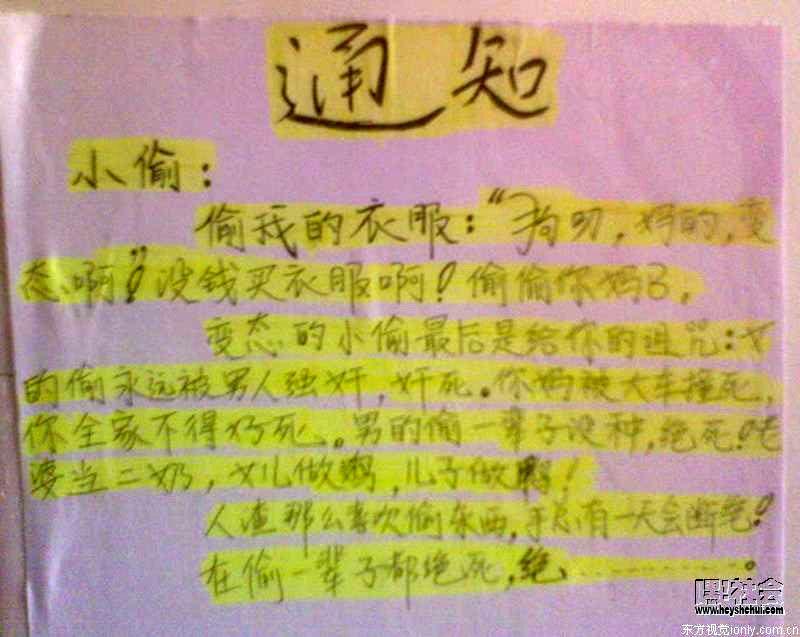 通知
小偷：
偷我的衣服：“狗曰，妈的，变
态啊！”没钱买衣服啊！偷偷你妈了，
变态的小偷最后是给你的诅咒：女
的偷永远被男人强奸，奸死。你妈被大车撞死，
你全家不得好死。男的偷一辈子没种，绝死！老
婆当二奶，女儿做鸡，儿子做鸭！
人渣那么喜欢偷东西，手总有一天会断绝！
在偷一辈子都绝死，绝…………。
黑社会
www.heyshehui.com
东方视觉ionly.com.cn